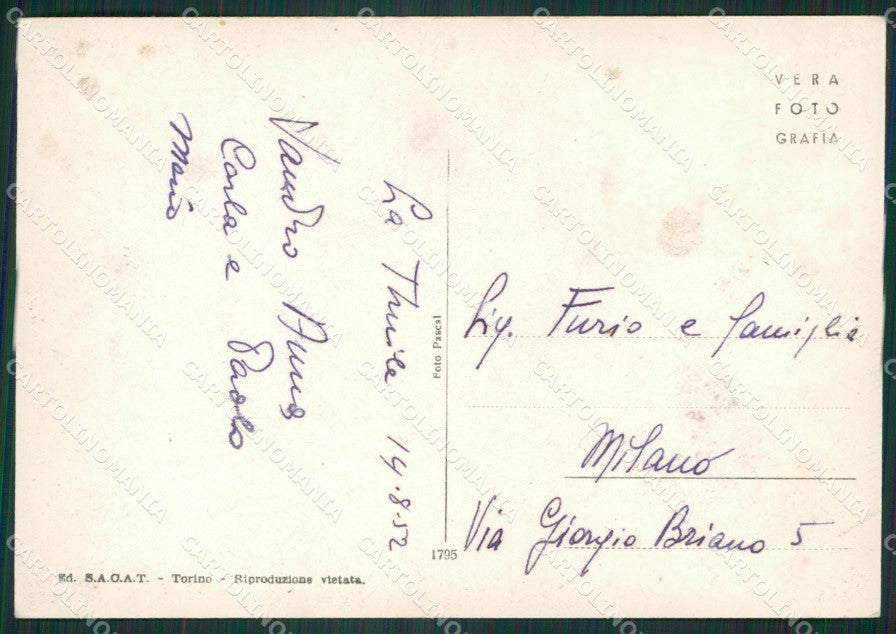 La Thuile 14.8.52
Vandro Anna
Carla e Paolo
Maria
VERA
FOTO
GRAFIA
Sig. Furio e famiglia
Milano
Via Giorgio Briano 5
Foto Pascal
1795
Ed. S.A.C.A.T. - Torino - Riproduzione vietata.
CARTOLINOMANIA